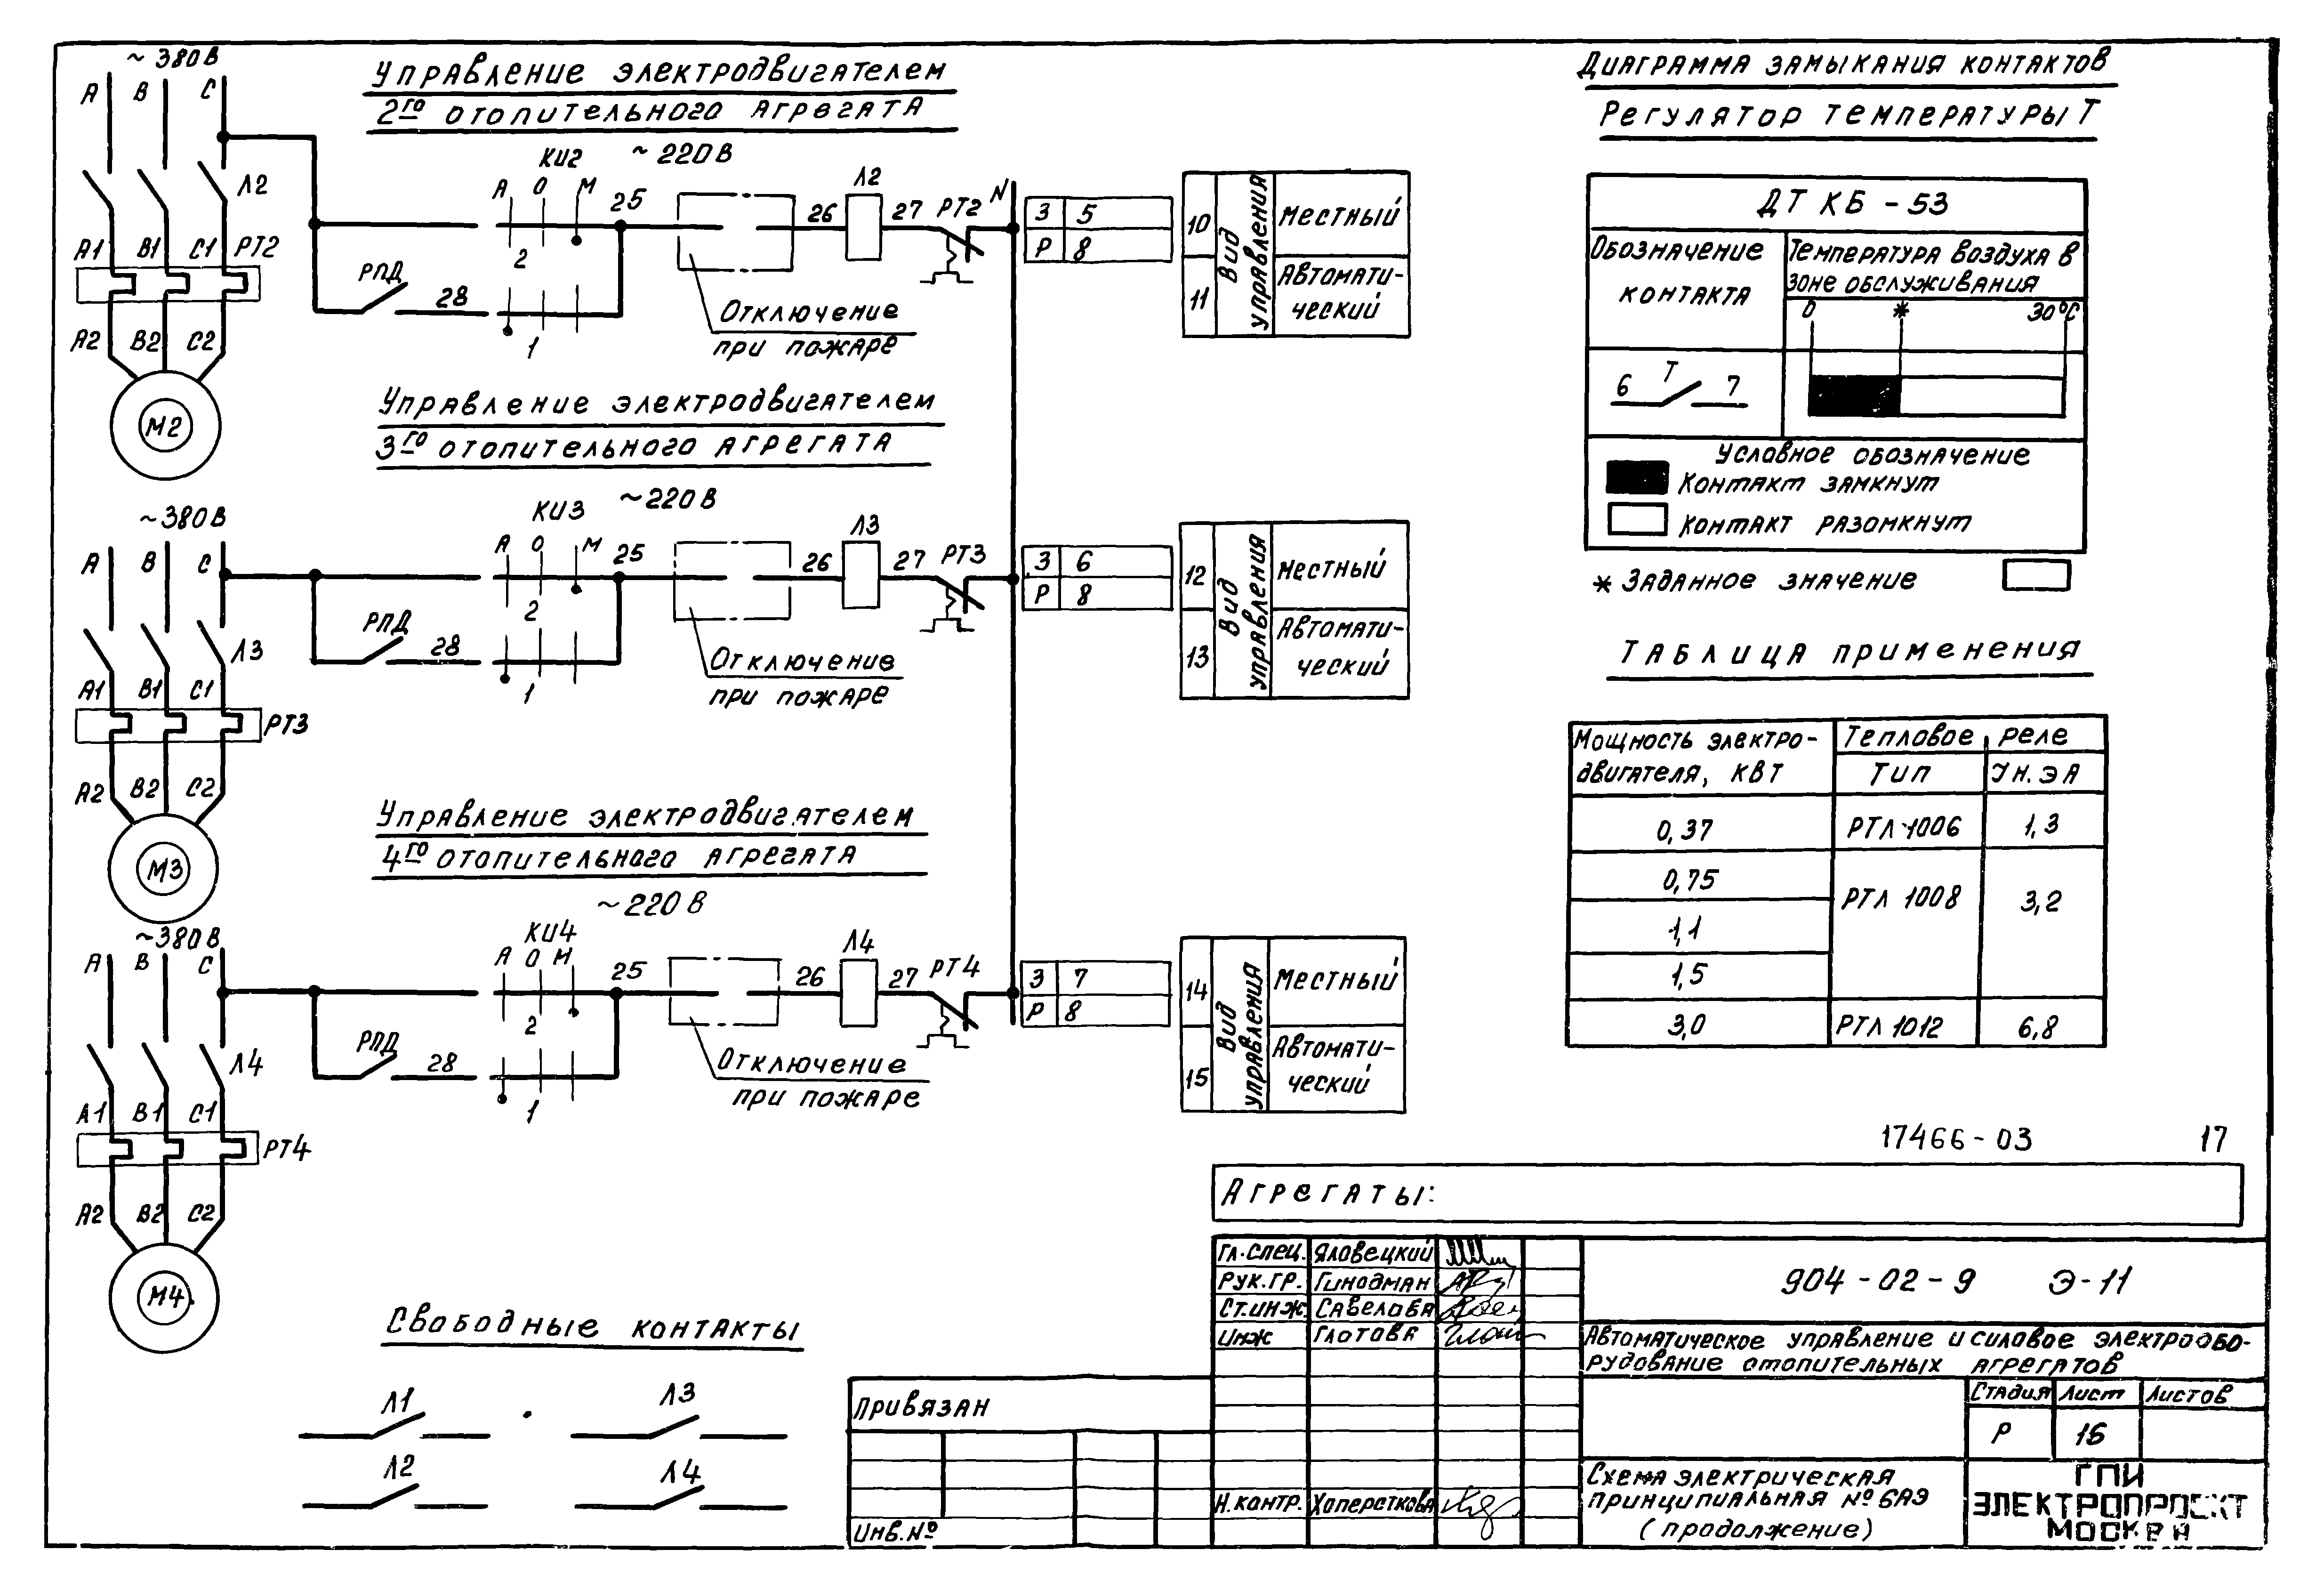 ~ 380В
А В С
Управление электродвигателем
2го отопительного агрегата
КИ2 ~ 220В
А О М 25
Л2
26 Л2 27 РТ2 N
А1 В1 С1 РТ2
2
РПД 28
1
Отключение
при пожаре
А2 В2 С2
М2
З 5
Р 8
10 Местный
11 Автомати-
ческий
Вид
управления
Управление электродвигателем
3го отопительного агрегата
~380В
А В С
КИ3 ~220В
А О М 25
26 Л3 27 РТ3
2
РПД 28
1
Отключение
при пожаре
Л3
А1 В1 С1
РТ3
А2 В2 С2
М3
З 6
Р 8
12 Местный
13 Автомати-
ческий
Вид
управления
Управление электродвигателем
4го отопительного агрегата
~220В
~380В
А В С
КИ4
А О М 25
26 Л4 27 РТ4
2
РПД 28
1
Отключение
при пожаре
Л4
А1 В1 С1
РТ4
А2 В2 С2
М4
З 7
Р 8
14 Местный
15 Автомати-
ческий
Вид
управления
Свободные контакты
Л1 Л3
Л2 Л4
Диаграмма замыкания контактов
Регулятор температуры Т
ДТКБ - 53
Обозначение
контакта
Температура воздуха в
зоне обслуживания
0 * 30°С
6 Т 7
Условное обозначение
Контакт замкнут
Контакт разомкнут
* Заданное значение
Таблица применения
Мощность электро-
двигателя, кВт
Тепловое реле
Тип Iн.э А
0,37 РТЛ-1006 1,3
0,75
РТЛ 1008 3,2
1,1
1,5
3,0 РТЛ 1012 6,8
17466-03 17
Агрегаты:
Гл.спец. Яловецкий
Рук.гр. Гинодман
Ст.инж. Савелова
Инж Глотова
Н.контр. Хоператкова
904-02-9 Э-11
Автоматическое управление и силовое электрообо-
рудование отопительных агрегатов
Стадия Лист Листов
Р 15
Схема электрическая
принципиальная № 6АЭ
(продолжение)
ГПИ
ЭЛЕКТРОПРОЕКТ
МОСКВА
Привязан
Инв.№